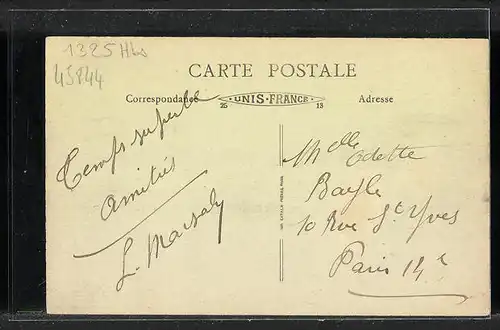 1325 Hbs
45844
CARTE POSTALE
Correspondance
UNIS-FRANCE
Adresse
25
13
Temps superbe
amitiés
L. Marsaly
Melle Odette
Bayle
10 Rue St Yves
Paris 14e